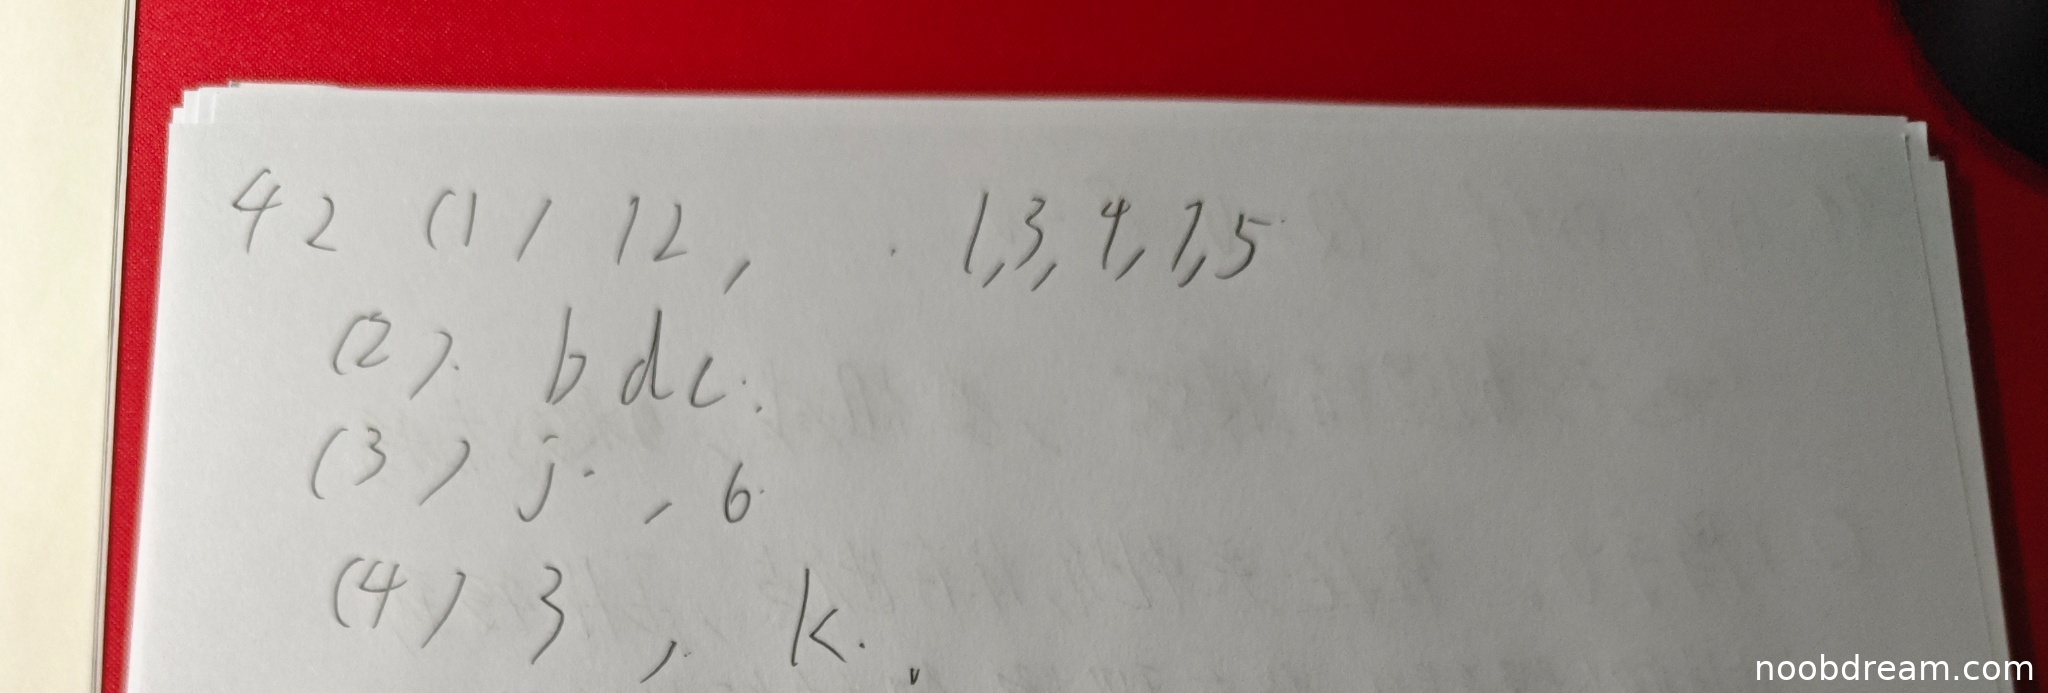 42 (1) 12, 1,3,4,7,5
(2). bdc.
(3) j. , 6.
(4) 3 , k.
noobdream.com